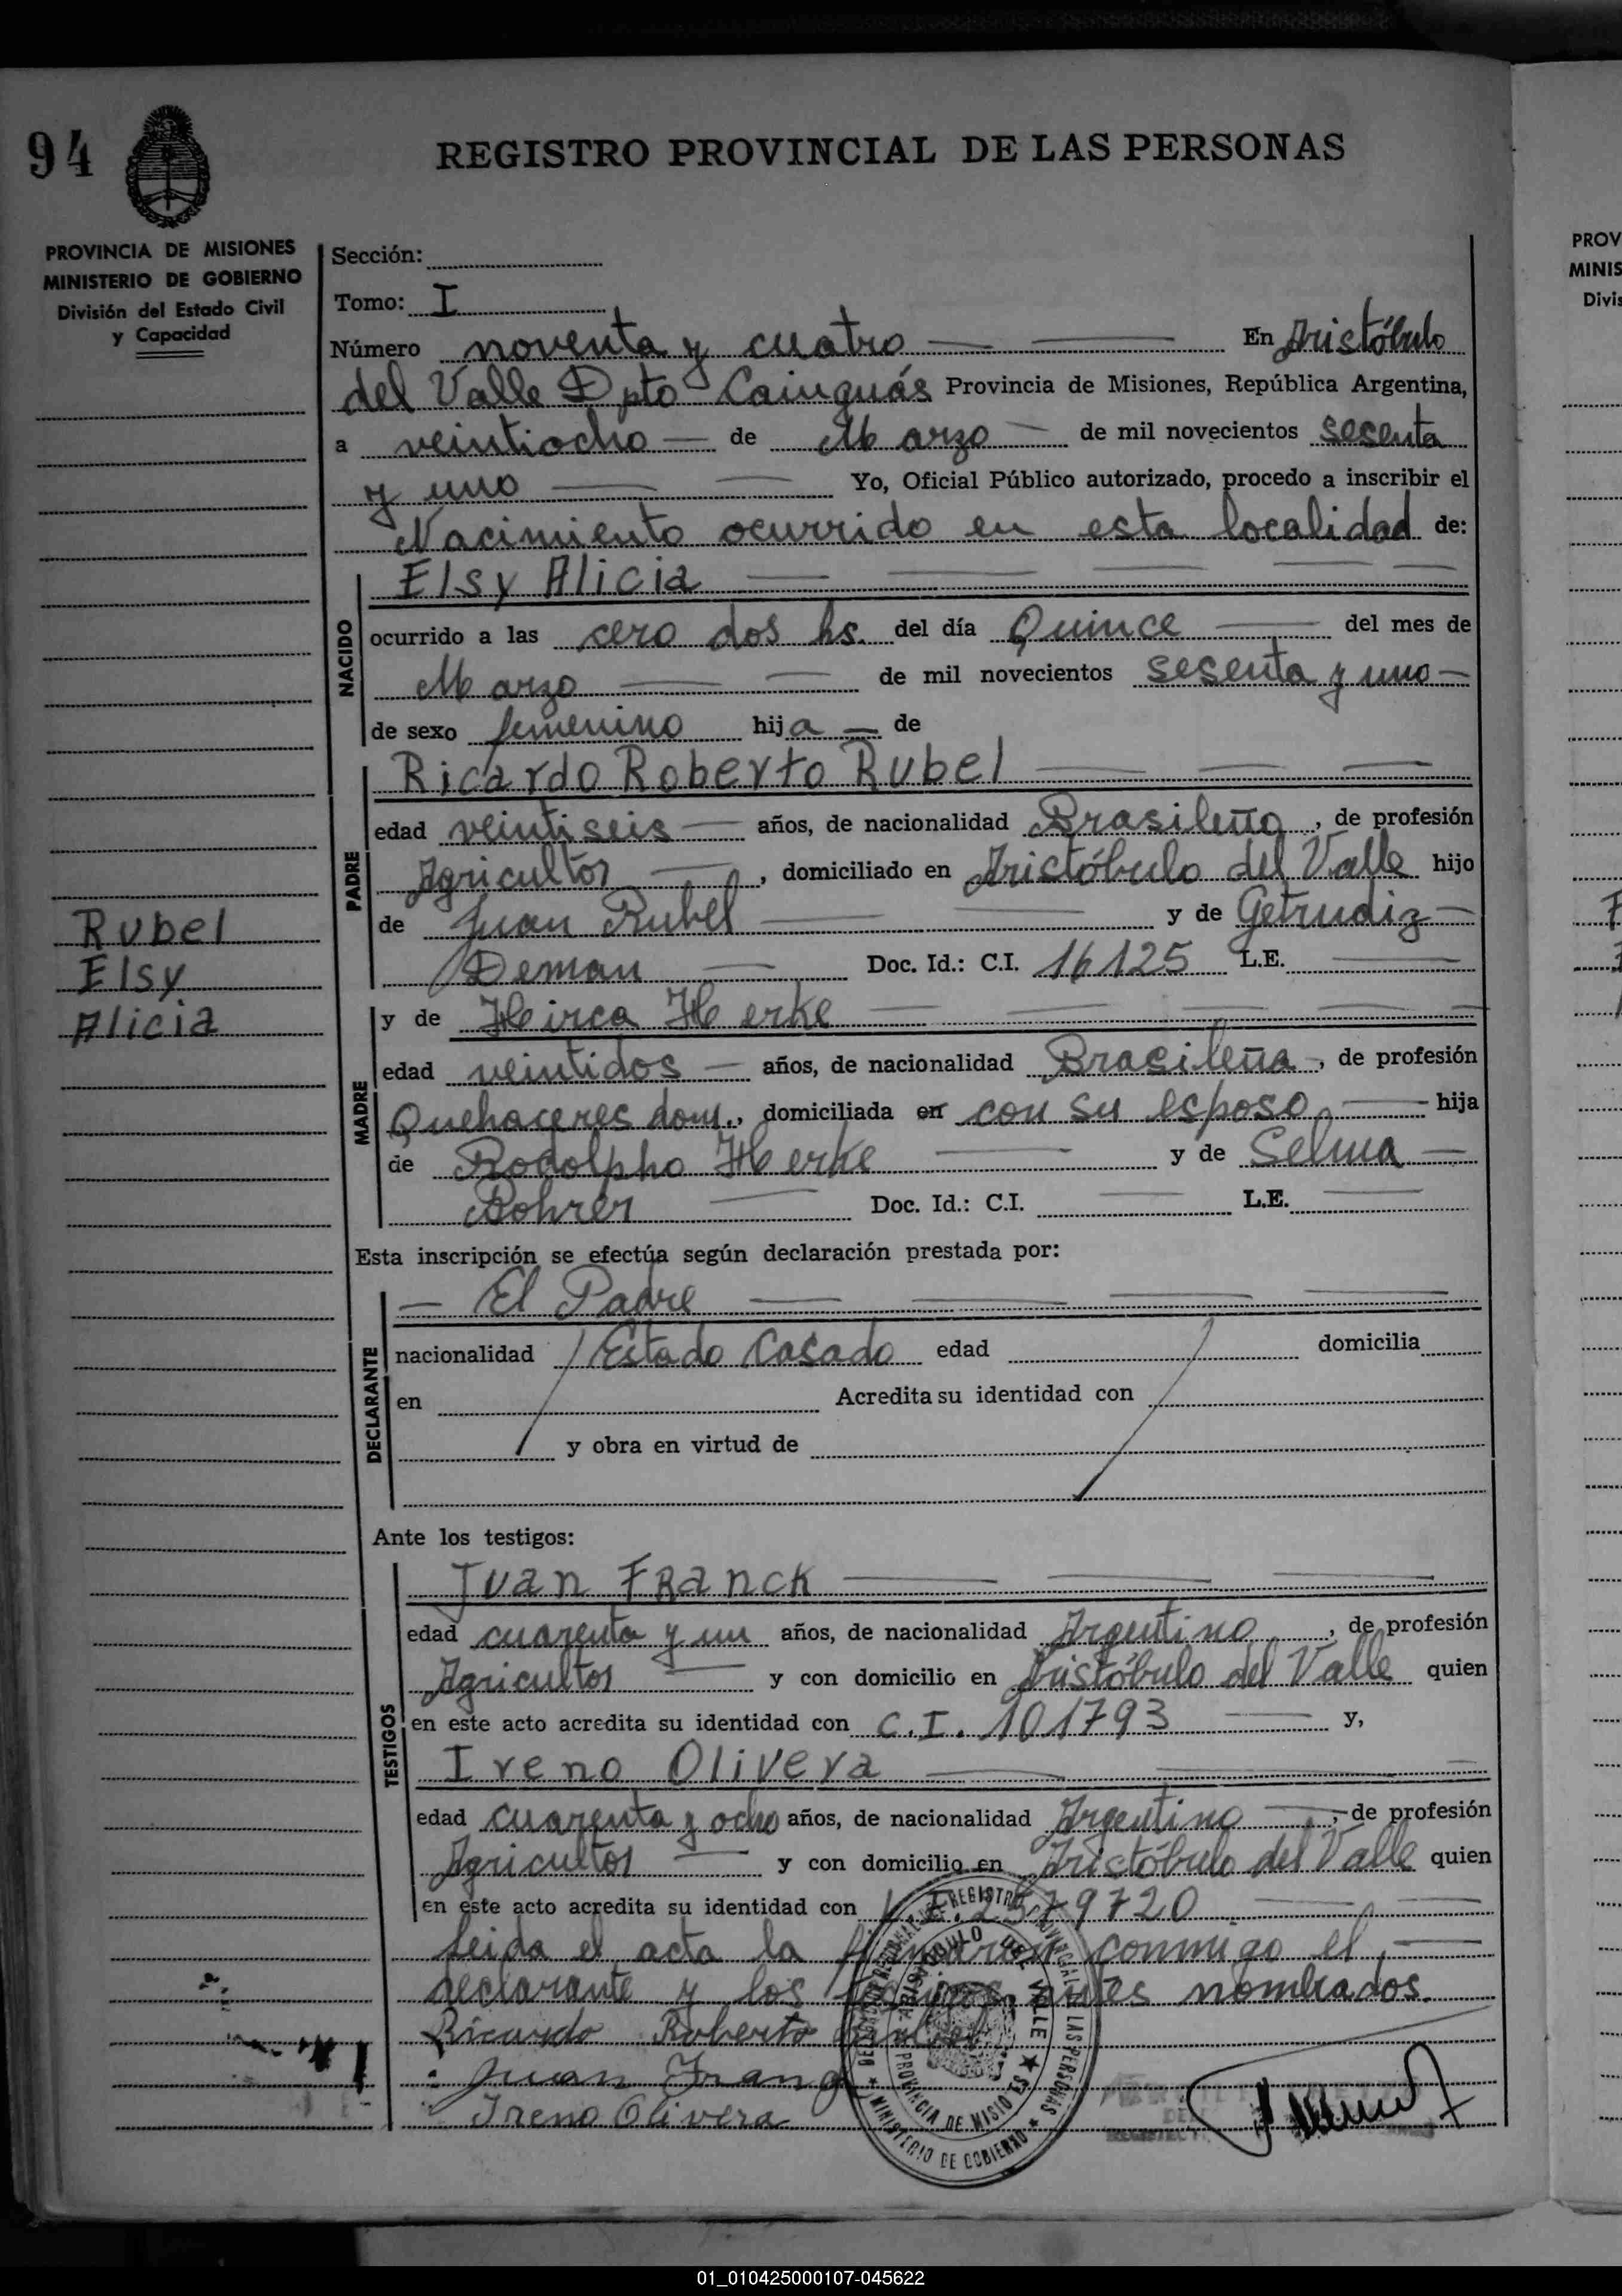 94
REGISTRO PROVINCIAL DE LAS PERSONAS
PROVINCIA DE MISIONES
MINISTERIO DE GOBIERNO
División del Estado Civil
y Capacidad
Sección:
Tomo: I
Número noventa y cuatro En Aristóbulo
del Valle Dpto Cainguás Provincia de Misiones, República Argentina,
a veintiocho de Marzo de mil novecientos sesenta
y uno Yo, Oficial Público autorizado, procedo a inscribir el
Nacimiento ocurrido en esta localidad de:
NACIDO
Elsy Alicia
ocurrido a las cero dos hs. del día Quince del mes de
Marzo de mil novecientos sesenta y uno
de sexo femenino hija de
PADRE
Ricardo Roberto Rubel
edad veintiseis años, de nacionalidad Brasileña, de profesión
Agricultor, domiciliado en Aristóbulo del Valle hijo
de Juan Rubel y de Getrudiz
Deman Doc. Id.: C.I. 16125 L.E.
Rubel
Elsy
Alicia
MADRE
y de Hirca Herke
edad veintidos años, de nacionalidad Brasileña, de profesión
Quehaceres dom., domiciliada en con su esposo hija
de Rodolpho Herke y de Selma
Bohrer Doc. Id.: C.I. L.E.
Esta inscripción se efectúa según declaración prestada por:
DECLARANTE
El Padre
nacionalidad Estado Casado edad domicilia
en Acredita su identidad con
y obra en virtud de
Ante los testigos:
TESTIGOS
Juan Franck
edad cuarenta y un años, de nacionalidad Argentino, de profesión
Agricultor y con domicilio en Aristóbulo del Valle quien
en este acto acredita su identidad con C.I. 101793 y,
Ireno Olivera
edad cuarenta y ocho años, de nacionalidad Argentino, de profesión
Agricultor y con domicilio en Aristóbulo del Valle quien
en este acto acredita su identidad con 2579720
Leida el acta la firmaron conmigo el
declarante y los testigos antes nombrados.
Ricardo Roberto Rubel
Juan Frang
Ireno Olivera
ARISTOBULO DEL VALLE
PROVINCIA DE MISIONES
MINISTERIO DE GOBIERNO
PROV
MINIS
Divis
01_010425000107-045622